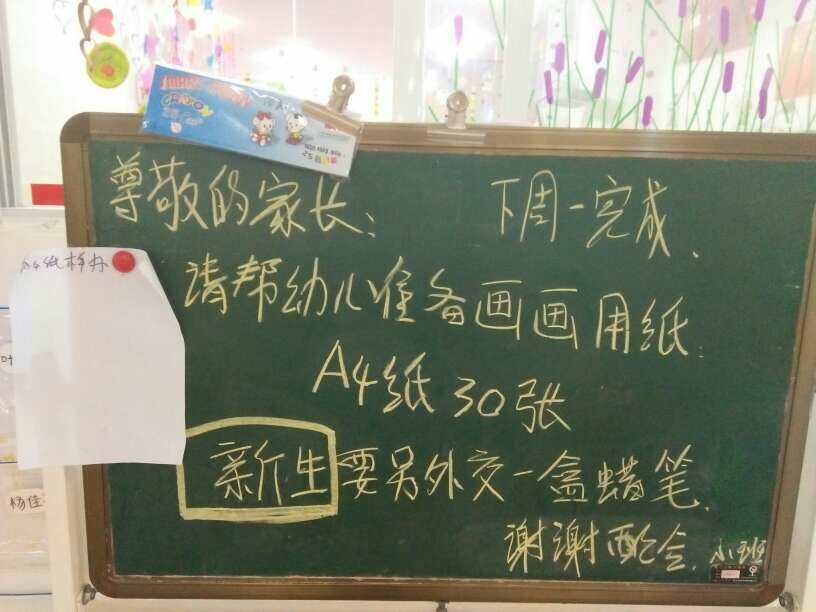 尊敬的家长: 下周一完成.
请帮幼儿准备画画用纸.
A4纸30张
新生要另外交一盒蜡笔.
谢谢配合. 小班
A4纸样办
叶
杨佳